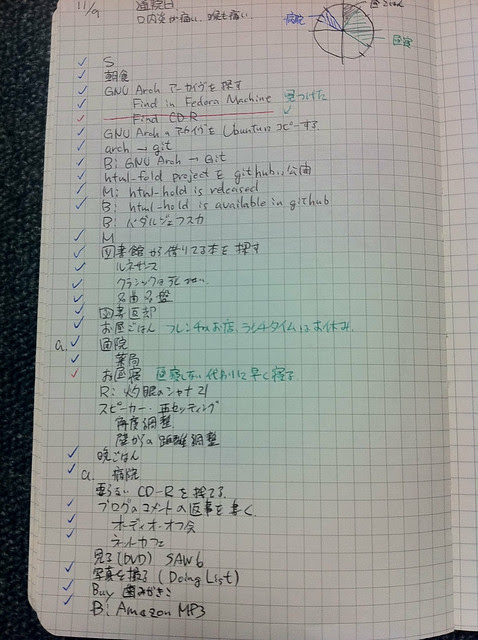 11/9 通院日.
口内炎が痛い. 喉も痛い.
病院
昼寝
S
朝食
GNU Arch アーカイヴを探す
Find in Fedora Machine 見つけた
Find CD-R
GNU Archのアーカイヴを Ubuntuにコピーする
arch → git
B: GNU Arch → Git
html-fold projectを githubに公開
M: html-hold is released
B: html-hold is available in github
B: バダルジェフスカ
M
図書館から借りてる本を探す
ルネサンス
クラシックは死なない
名曲名盤
図書返却
お昼ごはん フレンチのお店、ランチタイムはお休み.
a. 通院
薬局
お昼寝 昼寝しない代わりに早く寝る
R: 灼眼のシャナ 21
スピーカー・再セッティング
角度調整
壁からの距離調整
晩ごはん
a. 病院
要らない CD-Rを捨てる.
ブログのコメントの返事を書く.
オーディオ・オフ会
ネットカフェ
見る(DVD) SAW6
写真を撮る (Doing List)
Buy 歯みがきこ
B: Amazon MP3